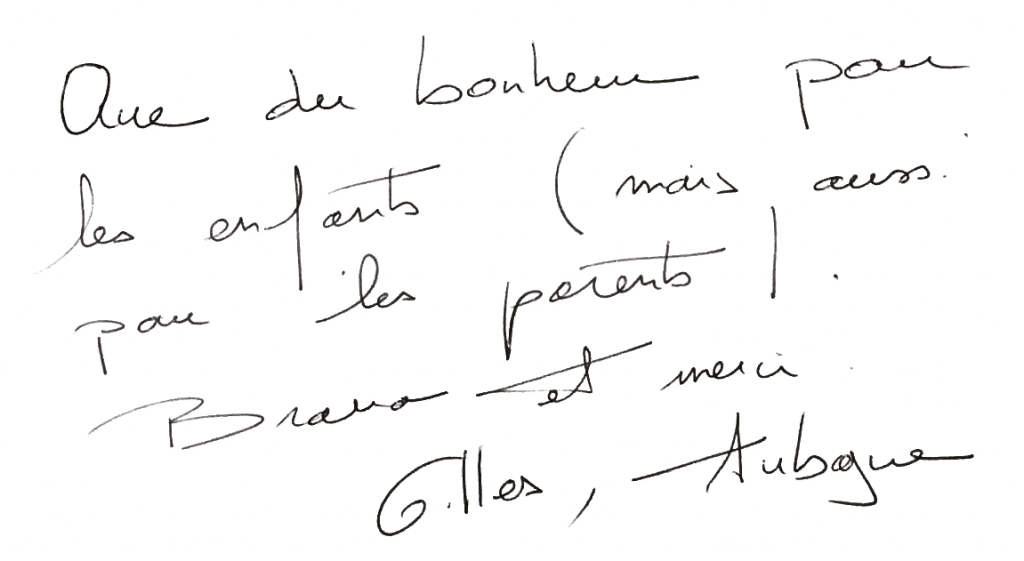 Que du bonheur pour
les enfants (mais aussi
pour les parents).
Bravo et merci
Gilles, Aubagne